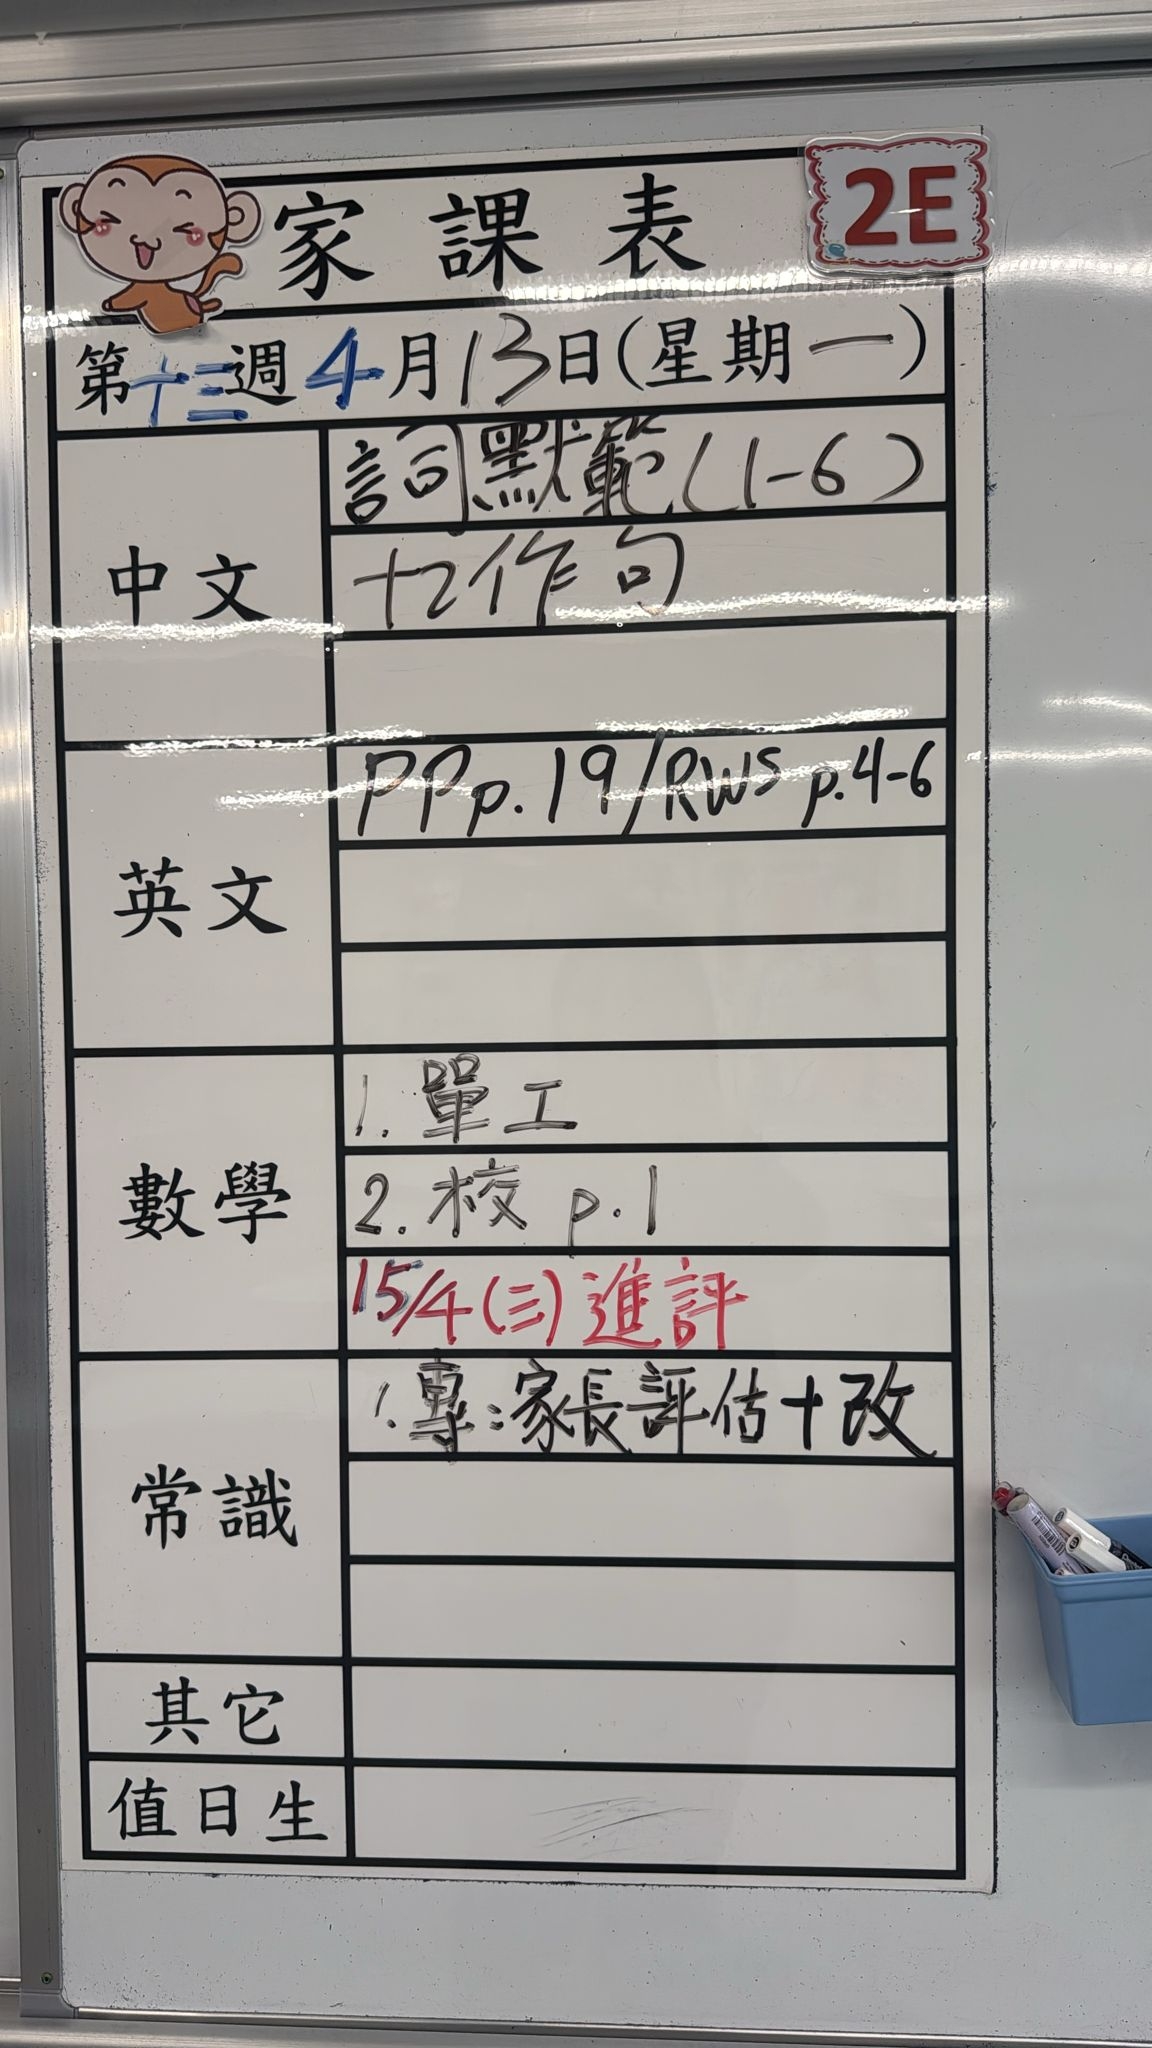 家課表
2E
第十三週4月13日(星期一)
中文
詞默範(1-6)
十乙作句
英文
PP p.19/RWS p.4-6
數學
1. 單工
2. 校 p.1
15/4(三)進評
常識
1.專:家長評估+改
其它
值日生